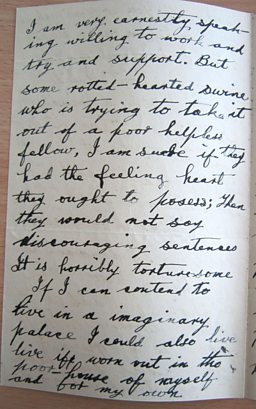 I am very earnestly, speak-
ing willing to work and
try and support. But
some rotted-hearted swine
who is trying to take it
out of a poor helpless
fellow, I am sure if they
had the feeling heart
they ought to posess; Then
they would not say
discouraging sentences
It is horribly torturesome
If I can contend to
live in a imaginary
palace I could also live
live if worn out in the
poor house of myself
and for my own